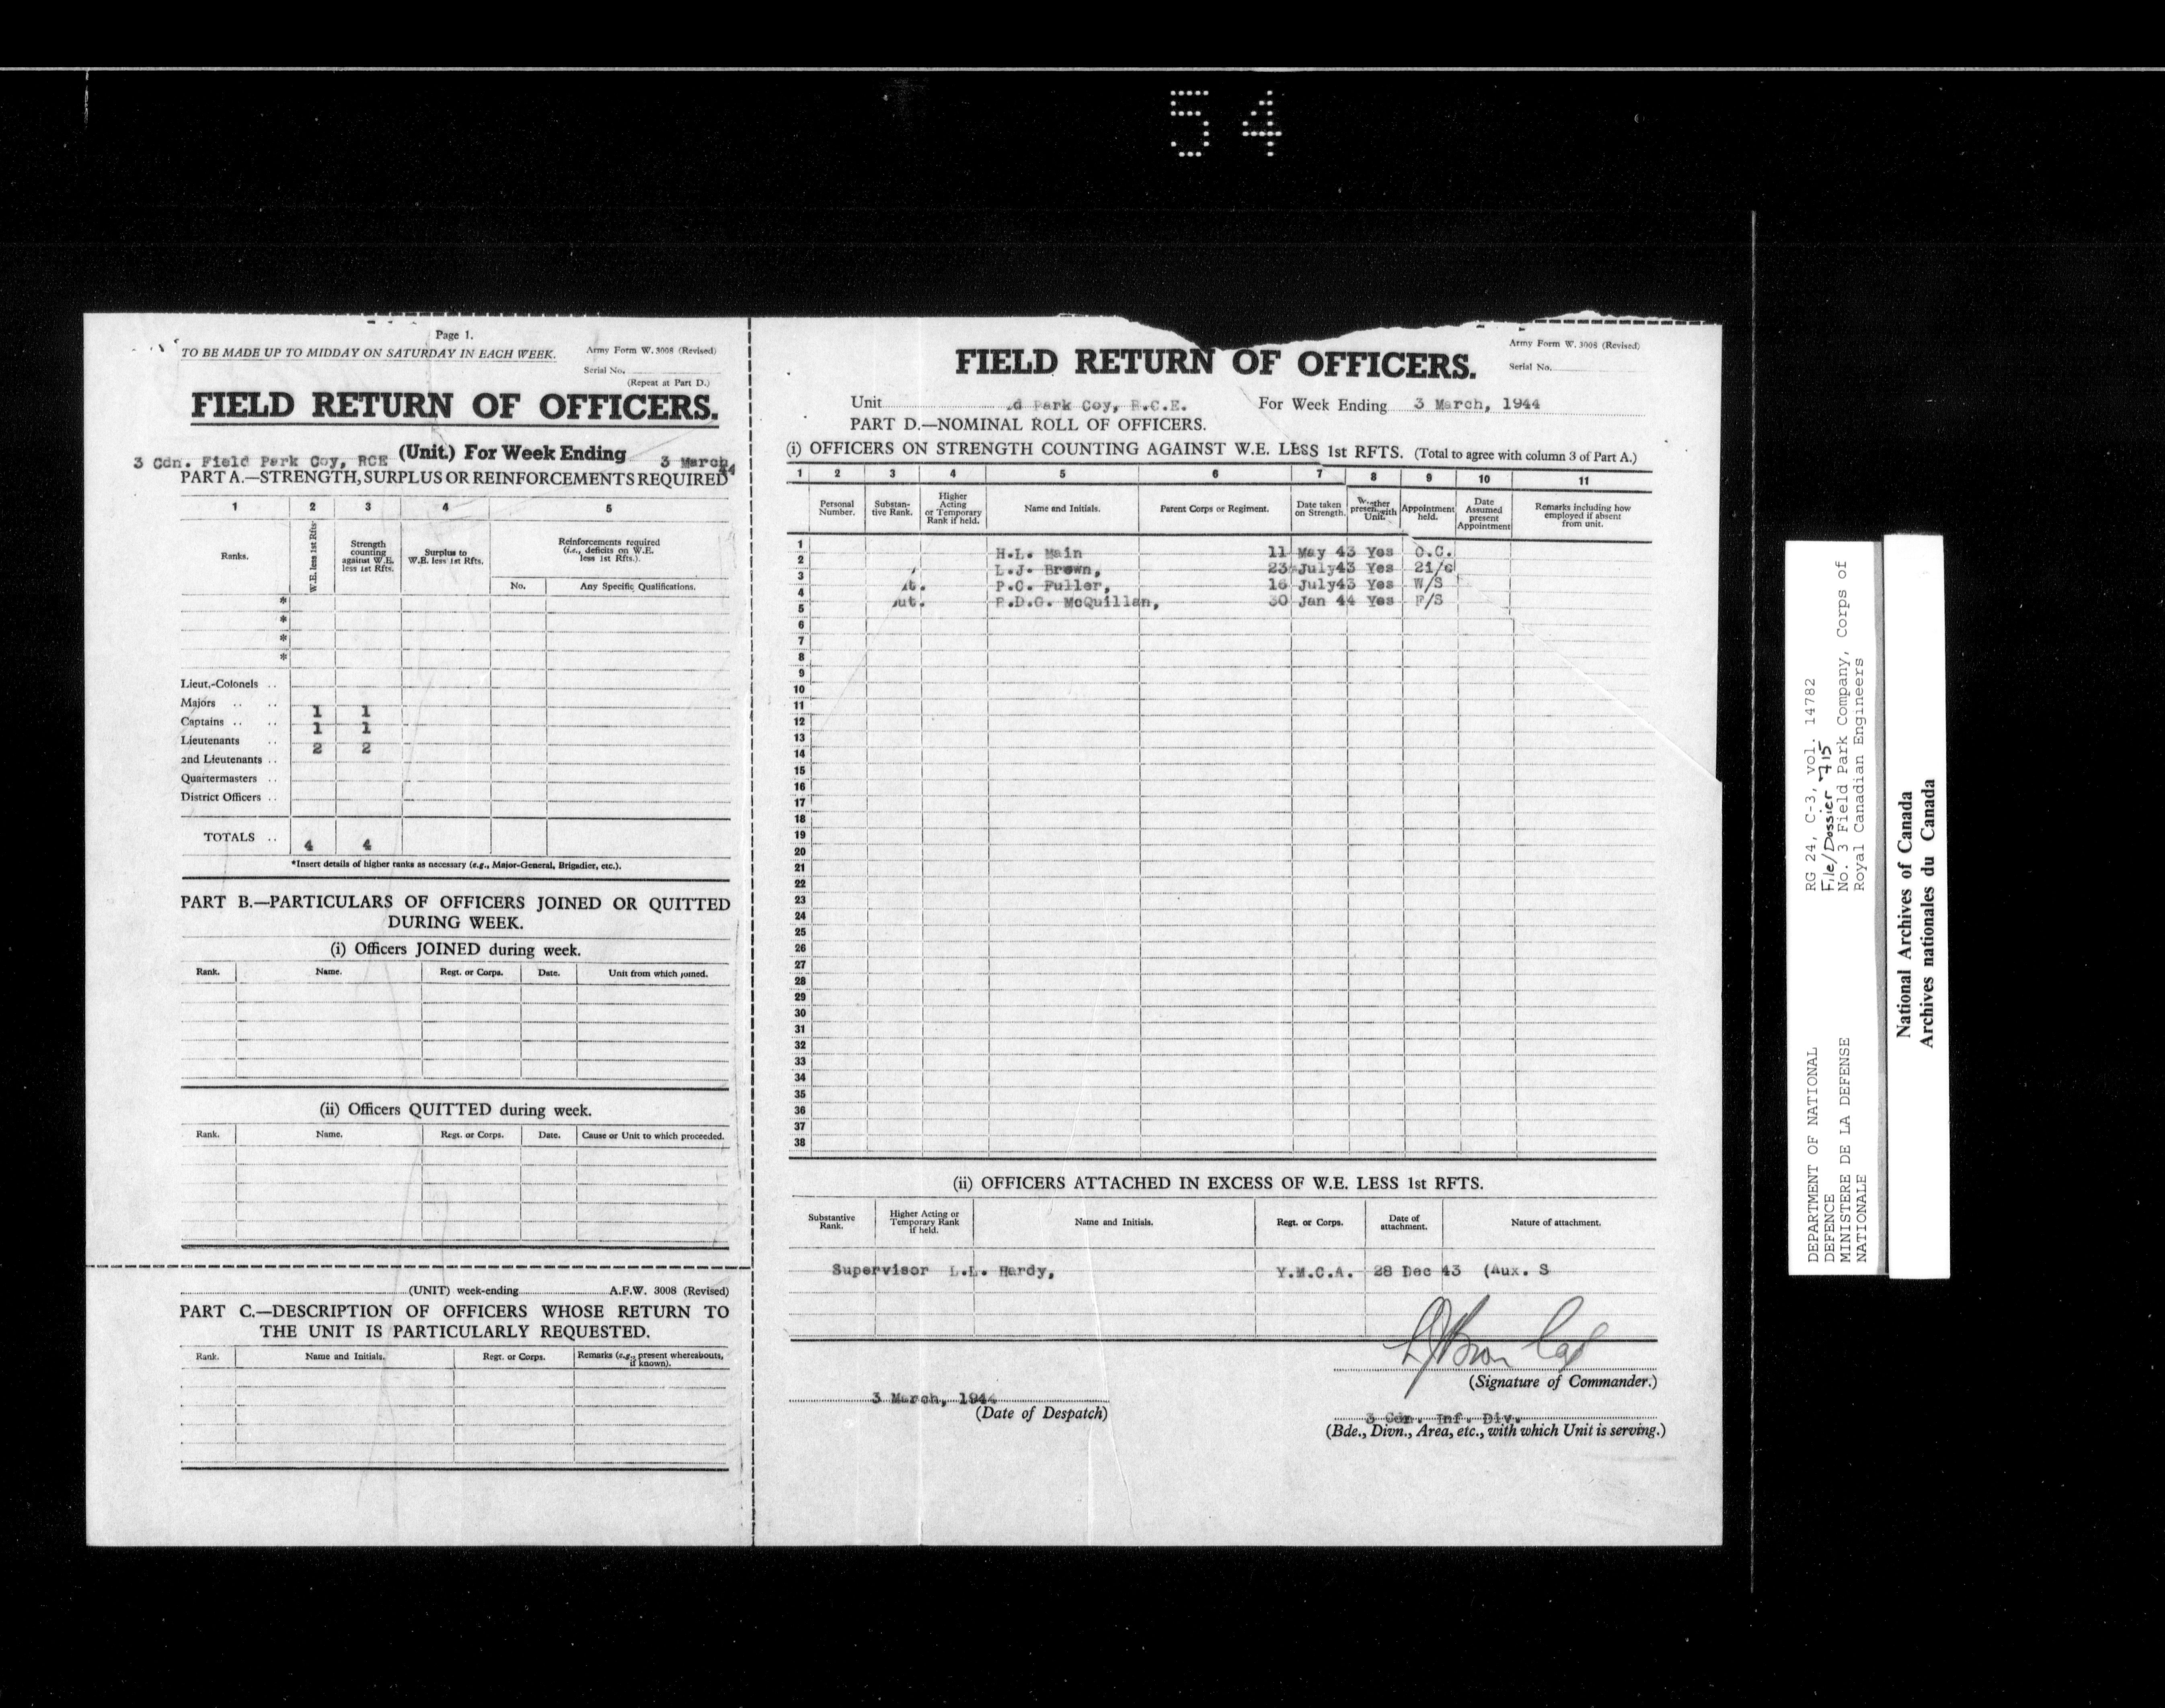 54
Page 1.
TO BE MADE UP TO MIDDAY ON SATURDAY IN EACH WEEK.
Army Form W. 3008 (Revised)
Serial No.
(Repeat at Part D.)
FIELD RETURN OF OFFICERS.
3 Cdn. Field Park Coy, RCE (Unit.) For Week Ending 3 March, 44
PART A.—STRENGTH, SURPLUS OR REINFORCEMENTS REQUIRED
1 2 3 4 5
Ranks.
W.E. less 1st Rfts.
Strength counting against W.E. less 1st Rfts.
Surplus to W.E. less 1st Rfts.
Reinforcements required (i.e., deficits on W.E. less 1st Rfts.).
No. Any Specific Qualifications.
*
*
*
*
Lieut.-Colonels ..
Majors .. .. 1 1
Captains .. .. 1 1
Lieutenants .. 2 2
2nd Lieutenants ..
Quartermasters ..
District Officers ..
TOTALS .. 4 4
*Insert details of higher ranks as necessary (e.g., Major-General, Brigadier, etc.).
PART B.—PARTICULARS OF OFFICERS JOINED OR QUITTED
DURING WEEK.
(i) Officers JOINED during week.
Rank. Name. Regt. or Corps. Date. Unit from which joined.
(ii) Officers QUITTED during week.
Rank. Name. Regt. or Corps. Date. Cause or Unit to which proceeded.
(UNIT) week-ending A.F.W. 3008 (Revised)
PART C.—DESCRIPTION OF OFFICERS WHOSE RETURN TO
THE UNIT IS PARTICULARLY REQUESTED.
Rank. Name and Initials. Regt. or Corps. Remarks (e.g., present whereabouts, if known).
Army Form W. 3008 (Revised)
Serial No.
FIELD RETURN OF OFFICERS.
Unit d Park Coy, R.C.E. For Week Ending 3 March, 1944
PART D.—NOMINAL ROLL OF OFFICERS.
(i) OFFICERS ON STRENGTH COUNTING AGAINST W.E. LESS 1st RFTS. (Total to agree with column 3 of Part A.)
1 2 3 4 5 6 7 8 9 10 11
Personal Number.
Substantive Rank.
Higher Acting or Temporary Rank if held.
Name and Initials.
Parent Corps or Regiment.
Date taken on Strength.
Whether present with Unit.
Appointment held.
Date Assumed present Appointment
Remarks including how employed if absent from unit.
1
2 H.L. Main 11 May 43 Yes O.C.
3 L.J. Brown, 23 July43 Yes 2i/c
4 t. P.C. Fuller, 16 July43 Yes W/S
5 ut. R.D.G. McQuillan, 30 Jan 44 Yes F/S
6
7
8
9
10
11
12
13
14
15
16
17
18
19
20
21
22
23
24
25
26
27
28
29
30
31
32
33
34
35
36
37
38
(ii) OFFICERS ATTACHED IN EXCESS OF W.E. LESS 1st RFTS.
Substantive Rank.
Higher Acting or Temporary Rank if held.
Name and Initials.
Regt. or Corps.
Date of attachment.
Nature of attachment.
Supervisor L.L. Hardy, Y.M.C.A. 28 Dec 43 (Aux. S
LJBrown Capt
(Signature of Commander.)
3 March, 1944
(Date of Despatch)
3 Cdn. Inf. Div.
(Bde., Divn., Area, etc., with which Unit is serving.)
DEPARTMENT OF NATIONAL
DEFENCE
MINISTERE DE LA DEFENSE
NATIONALE
RG 24, C-3, vol. 14782
File/Dossier 715
No. 3 Field Park Company, Corps of
Royal Canadian Engineers
National Archives of Canada
Archives nationales du Canada